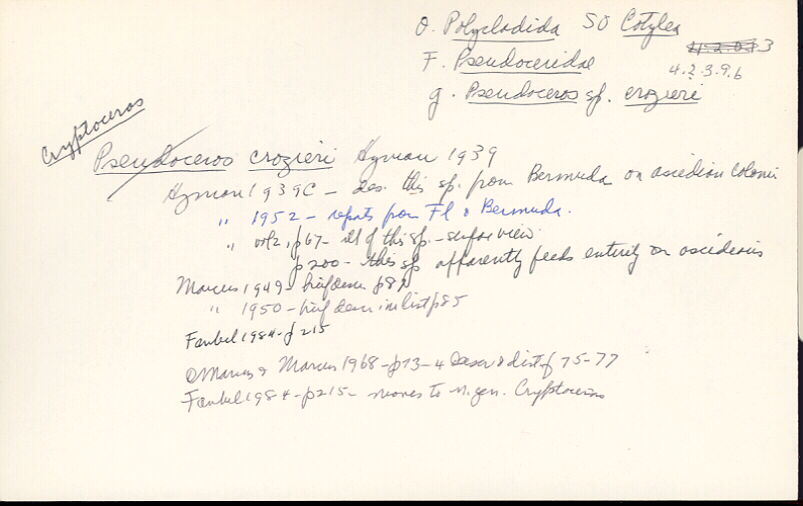 O. Polycladida SO Cotylea
4.2.0.73
F. Pseudoceridae
4.2.3.9.6
g. Pseudoceros sp. crozieri
Cryptoceros
Pseudoceros crozieri Hyman 1939
Hyman 1939C – des. this sp. from Bermuda on ascidian colonies
" 1952 – reports from Fl & Bermuda.
" vol 2, p67 – ill of this sp. – surface view
p200 – this sp apparently feeds entirely on ascidians
Marcus 1949 – brief descr p87
" 1950 – brief descr in list p85
Faubel 1984 – p215
Marcus & Marcus 1968 – p73-4 descr & dist 75-77
Faubel 1984 – p215 – moves to n. gen. Cryptoceros